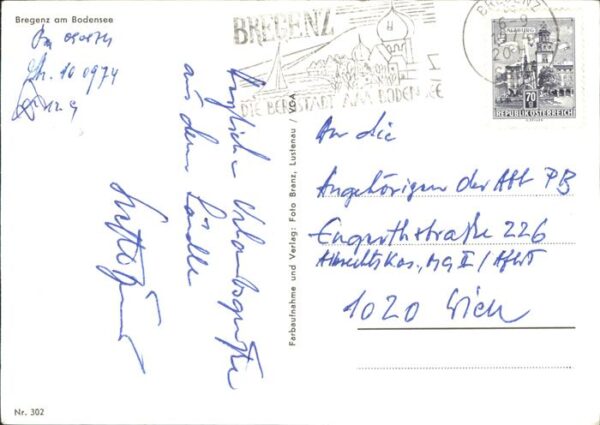 Bregenz am Bodensee
12.9
BREGENZ
DIE BERGSTADT AM BODENSEE
BREGENZ
6.-9.
20
SALZBURG
70
REPUBLIK ÖSTERREICH
Herzliche Urlaubsgrüße
aus dem Ländle
Farbaufnahme und Verlag: Foto Branz, Lustenau / VOA
An die
Angehörigen der Abt PB
Engerthstraße 226
Albrechtskas,
1020 Wien
Nr. 302